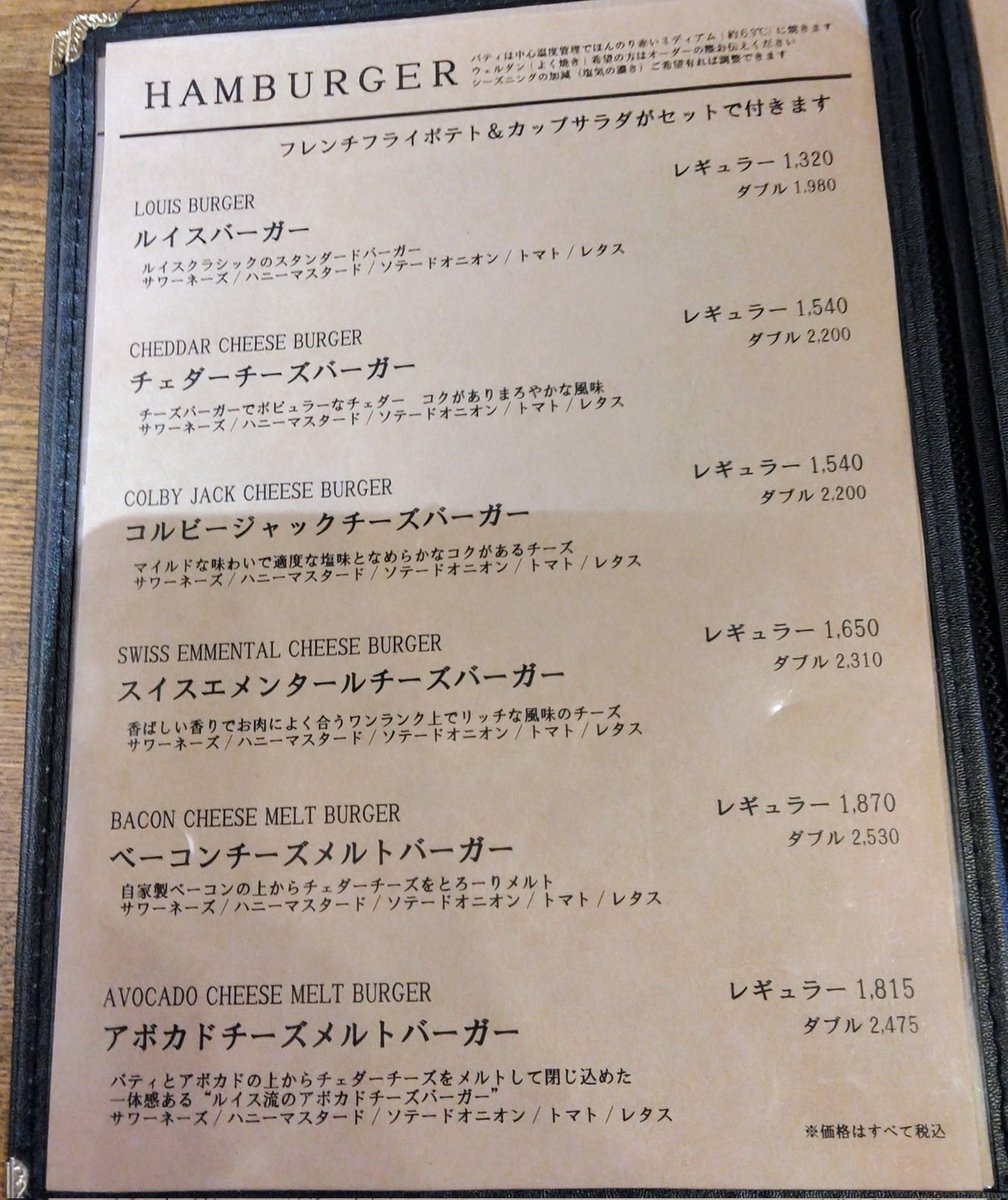 HAMBURGER
パティは中心温度管理でほんのり赤いミディアム(約63℃)に焼きます
ウェルダン(よく焼き)希望の方はオーダーの際お伝えください
シーズニングの加減(塩気の濃さ)ご希望有れば調整できます
フレンチフライポテト&カップサラダがセットで付きます
LOUIS BURGER
レギュラー 1,320
ルイスバーガー
ダブル 1,980
ルイスクラシックのスタンダードバーガー
サワーネーズ / ハニーマスタード / ソテードオニオン / トマト / レタス
CHEDDAR CHEESE BURGER
レギュラー 1,540
チェダーチーズバーガー
ダブル 2,200
チーズバーガーでポピュラーなチェダー コクがありまろやかな風味
サワーネーズ / ハニーマスタード / ソテードオニオン / トマト / レタス
COLBY JACK CHEESE BURGER
レギュラー 1,540
コルビージャックチーズバーガー
ダブル 2,200
マイルドな味わいで適度な塩味となめらかなコクがあるチーズ
サワーネーズ / ハニーマスタード / ソテードオニオン / トマト / レタス
SWISS EMMENTAL CHEESE BURGER
レギュラー 1,650
スイスエメンタールチーズバーガー
ダブル 2,310
香ばしい香りでお肉によく合うワンランク上でリッチな風味のチーズ
サワーネーズ / ハニーマスタード / ソテードオニオン / トマト / レタス
BACON CHEESE MELT BURGER
レギュラー 1,870
ベーコンチーズメルトバーガー
ダブル 2,530
自家製ベーコンの上からチェダーチーズをとろーりメルト
サワーネーズ / ハニーマスタード / ソテードオニオン / トマト / レタス
AVOCADO CHEESE MELT BURGER
レギュラー 1,815
アボカドチーズメルトバーガー
ダブル 2,475
パティとアボカドの上からチェダーチーズをメルトして閉じ込めた
一体感ある“ルイス流のアボカドチーズバーガー”
サワーネーズ / ハニーマスタード / ソテードオニオン / トマト / レタス
※価格はすべて税込